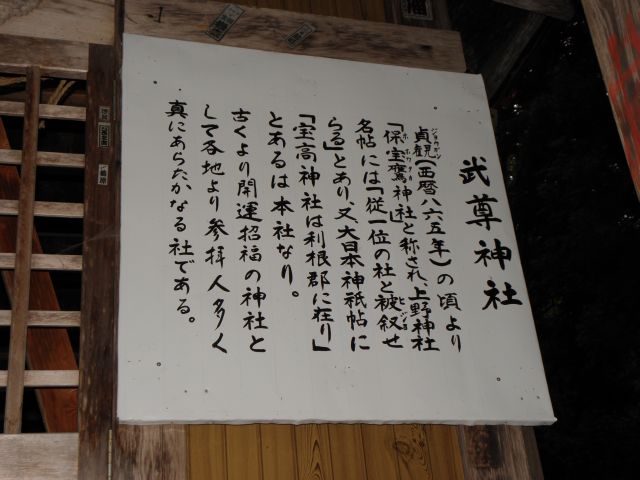 武尊神社
貞観(西暦八六五年)の頃より
「保宝鷹神社」と称され、上野神社
名帖には「従一位の社と被叙せ
らる」とあり、又、大日本神祇帖に
「宝高神社は利根郡に在り」
とあるは本社なり。
古くより開運招福の神社と
して各地より参拝人多く
真にあらたかなる社である。